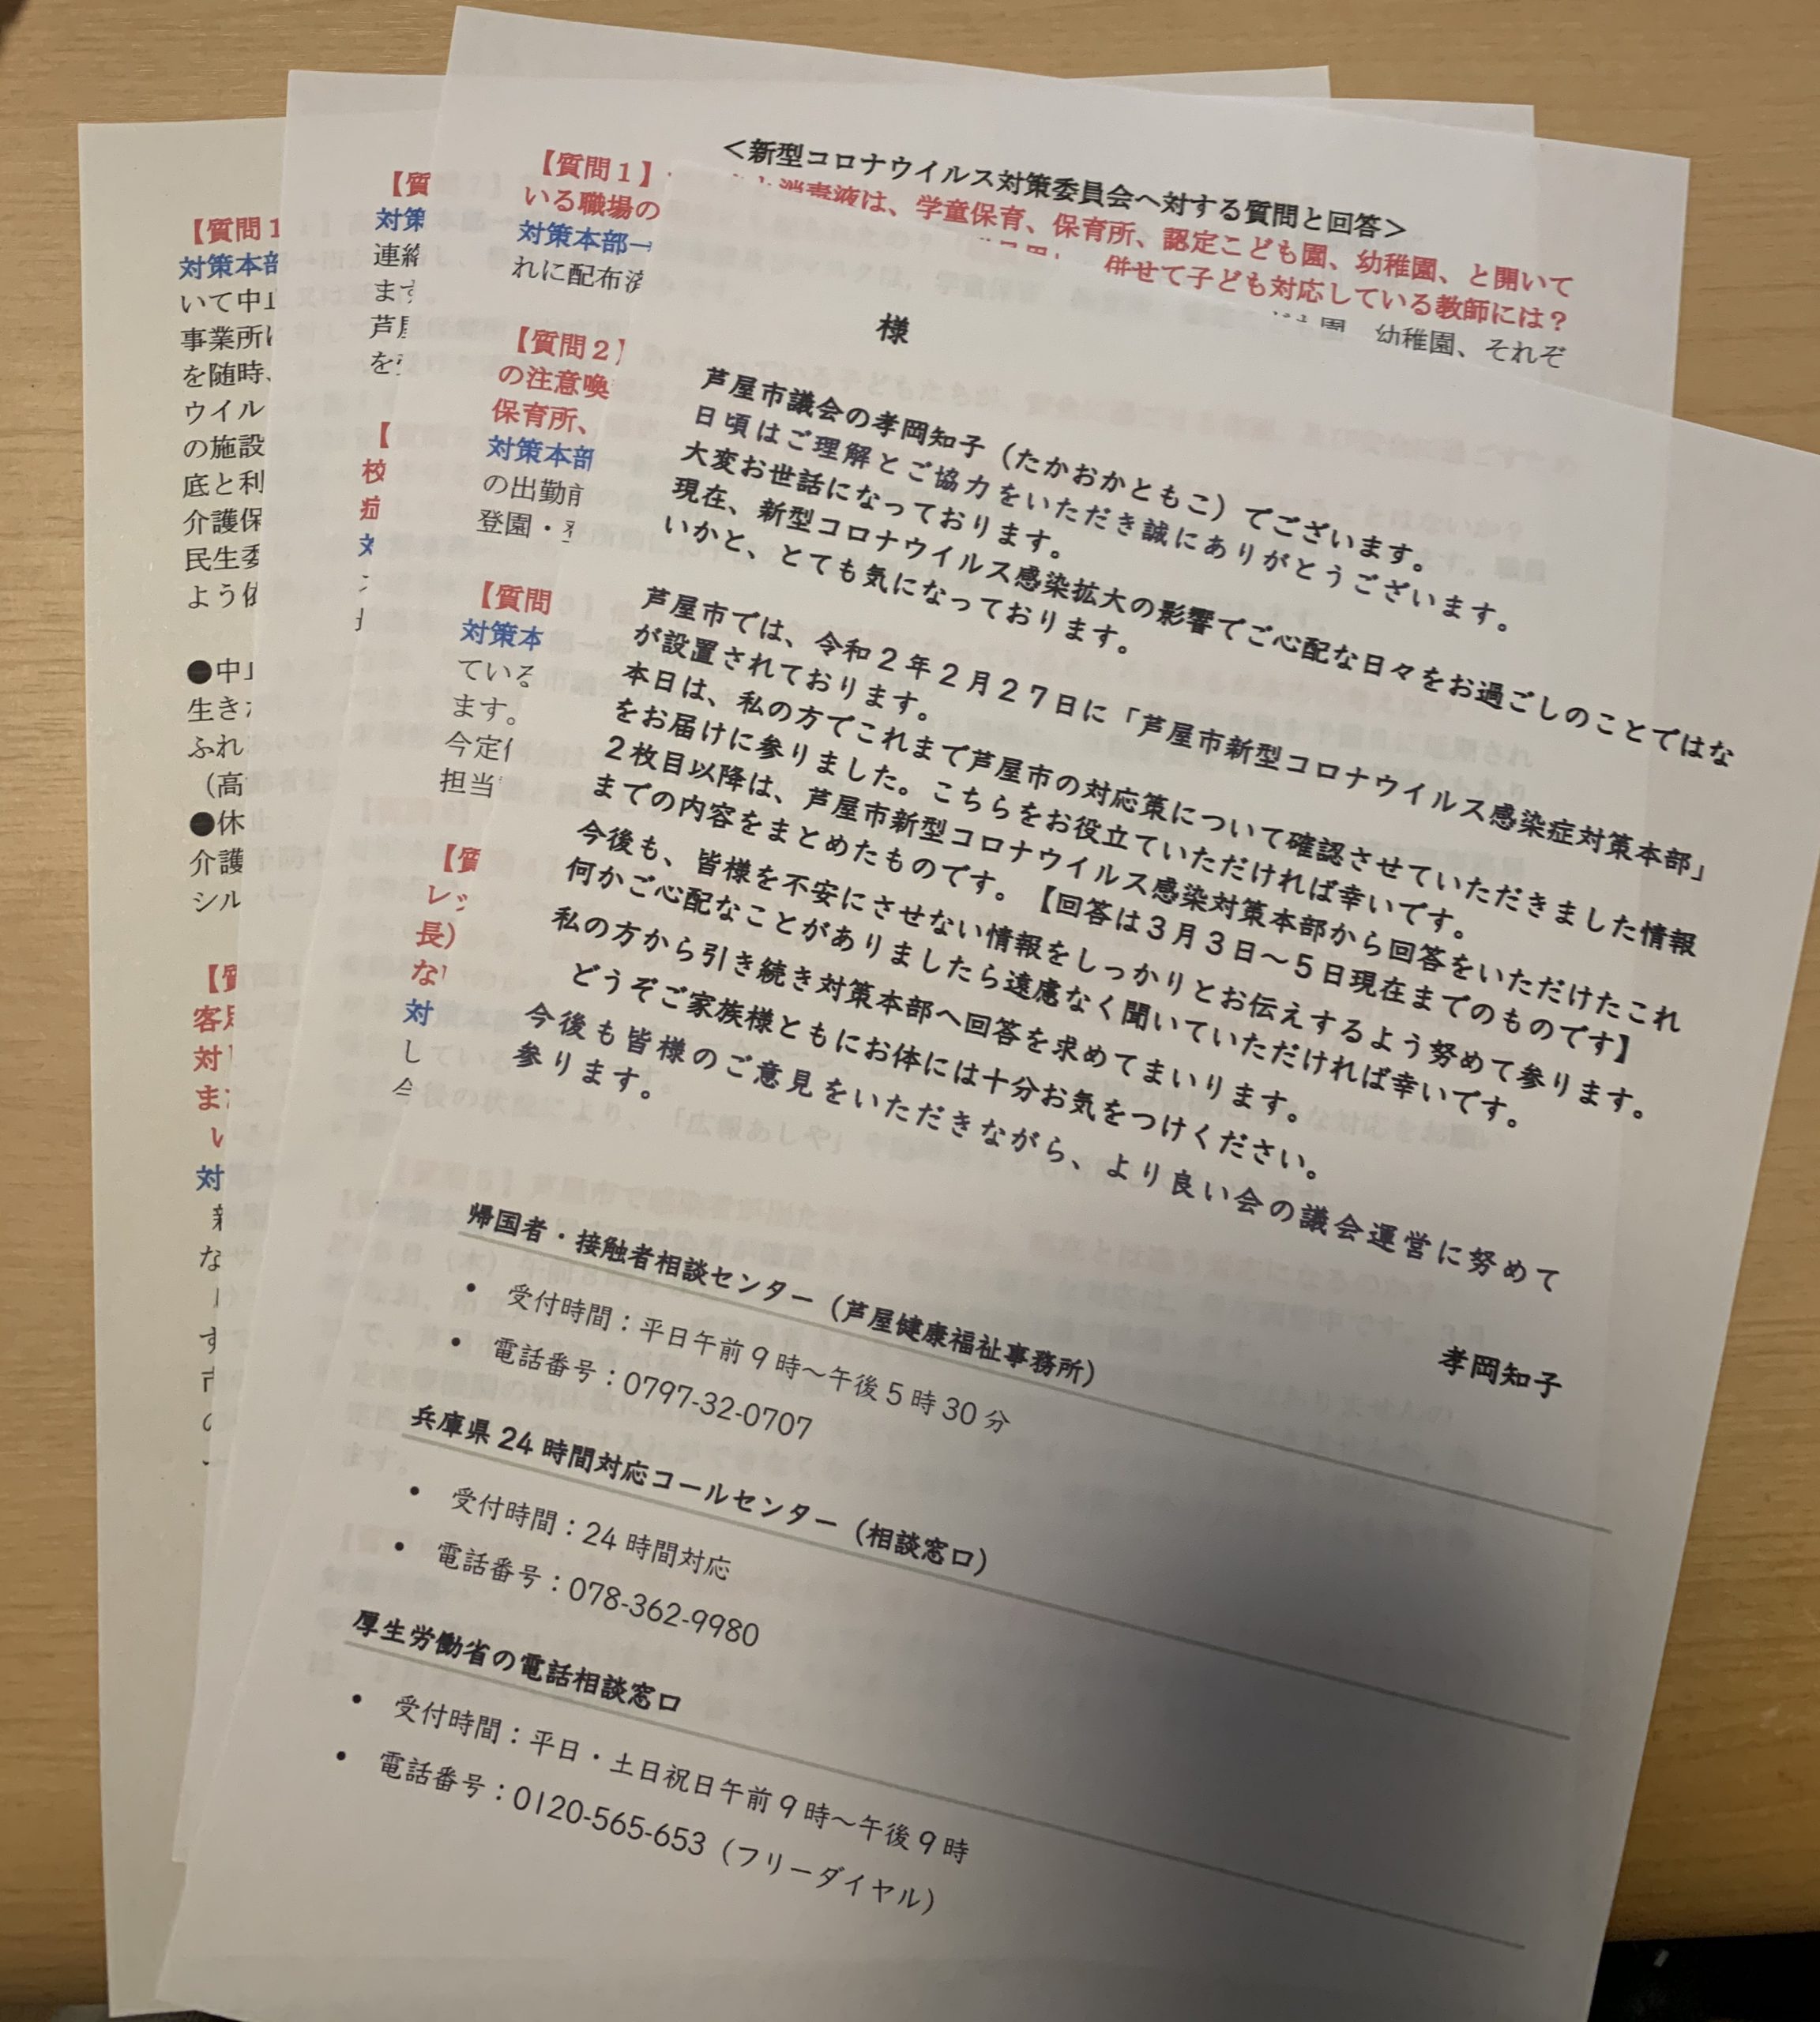 様
芦屋市議会の孝岡知子（たかおかともこ）でございます。
日頃はご理解とご協力をいただき誠にありがとうございます。
大変お世話になっております。
現在、新型コロナウイルス感染拡大の影響でご心配な日々をお過ごしのことではな
いかと、とても気になっております。
芦屋市では、令和２年２月２７日に「芦屋市新型コロナウイルス感染症対策本部」
が設置されております。
本日は、私の方でこれまで芦屋市の対応策について確認させていただきました情報
をお届けに参りました。こちらをお役立ていただければ幸いです。
２枚目以降は、芦屋市新型コロナウイルス感染対策本部から回答をいただけたこれ
までの内容をまとめたものです。【回答は３月３日～５日現在までのものです】
今後も、皆様を不安にさせない情報をしっかりとお伝えするよう努めて参ります。
何かご心配なことがありましたら遠慮なく聞いていただければ幸いです。
私の方から引き続き対策本部へ回答を求めてまいります。
どうぞご家族様ともにお体には十分お気をつけください。
今後も皆様のご意見をいただきながら、より良い会の議会運営に努めて
参ります。
孝岡知子
帰国者・接触者相談センター（芦屋健康福祉事務所）
• 受付時間：平日午前９時～午後５時30分
• 電話番号：0797-32-0707
兵庫県24時間対応コールセンター（相談窓口）
• 受付時間：24時間対応
• 電話番号：078-362-9980
厚生労働省の電話相談窓口
• 受付時間：平日・土日祝日午前９時～午後９時
• 電話番号：0120-565-653（フリーダイヤル）
＜新型コロナウイルス対策委員会へ対する質問と回答＞
【質問１】 消毒液は、学童保育、保育所、認定こども園、幼稚園、と開いて
いる職場の 併せて子ども対応している教師には？
対策本部→ 幼稚園、それぞ
れに配布済
【質問２】
の注意喚
保育所、
対策本部
の出勤前
登園・
【質問
対策本
ている
ます。
今定
担当
【質
レッ
長）
な
対
し
【質
対策
連絡
ます
芦屋
を
【
校
症
対
【質問１
対策本部
いて中止
事業所に
を随時、
ウイル
の施設
底と利
介護保
民生委
よう依
●中止
生きた
ふれ
（高
●休
介護
シル
【質
客足
対
ま
い
対
な
す
市
の